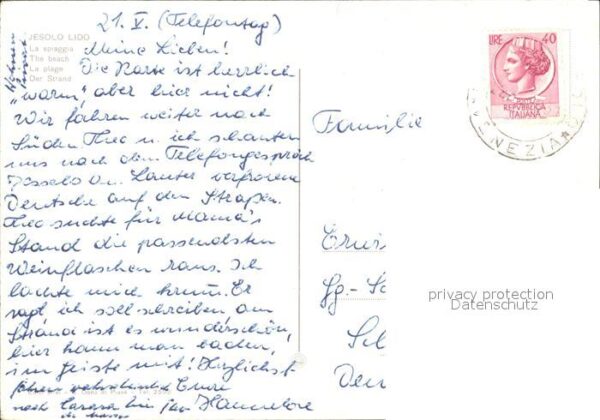 21. V. (Telefontag)
JESOLO LIDO
La spiaggia
The beach
La plage
Der Strand
Meine Lieben!
Die Karte ist herrlich
"warm" aber hier nicht!
Wir fahren weiter nach
Süden. Theo u. ich schauten
uns nach dem Telefongespräch
Jesolo an. Lauter verfrorene
Deutsche auf den Straßen.
Theo suchte für Mama's
Stand die passendsten
Weinflaschen raus. Ich
lachte mich krumm. Er
sagt ich soll schreiben am
Strand ist es wunderschön,
hier kann man baden,
im Geiste mit! Herzlichst
fahren wahrscheinlich Eure
nach Hannelore
LIRE 40
REPVBBLICA
ITALIANA
VENEZIA
Familie
privacy protection
Datenschutz